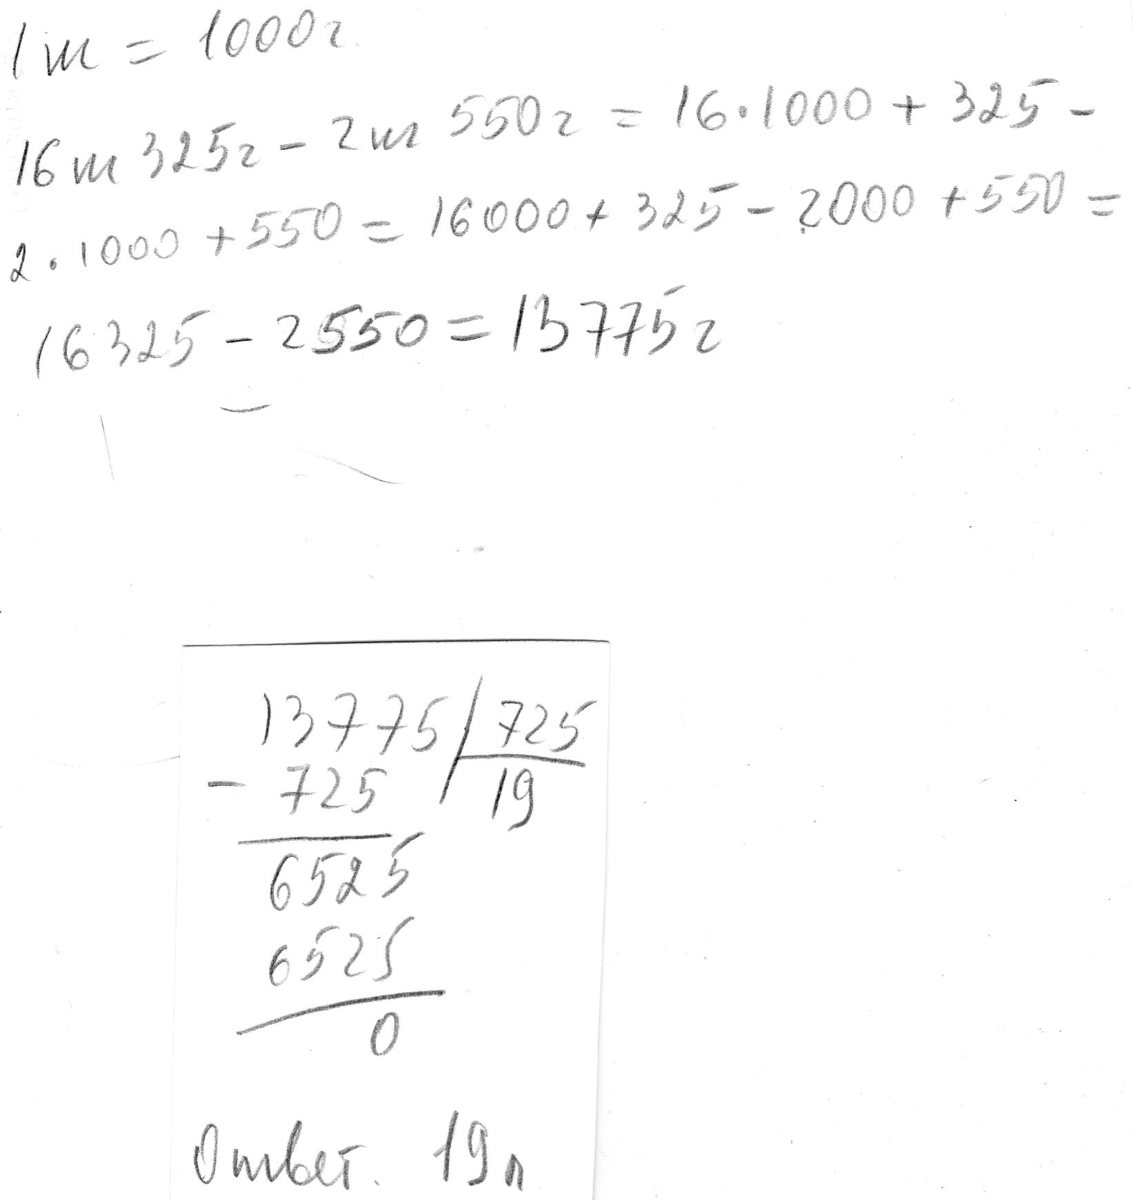 1т = 1000г
16т 325г - 2т 550г = 16·1000 + 325 -
2·1000 + 550 = 16000 + 325 - 2000 + 550 =
16325 - 2550 = 13775г
13775 | 725
- 725 19
6525
6525
0
Ответ. 19л